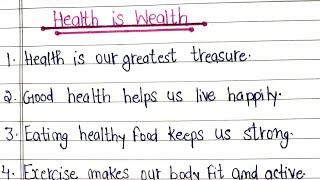 Health is Wealth
1. Health is our greatest treasure.
2. Good health helps us live happily.
3. Eating healthy food keeps us strong.
4. Exercise makes our body fit and active.